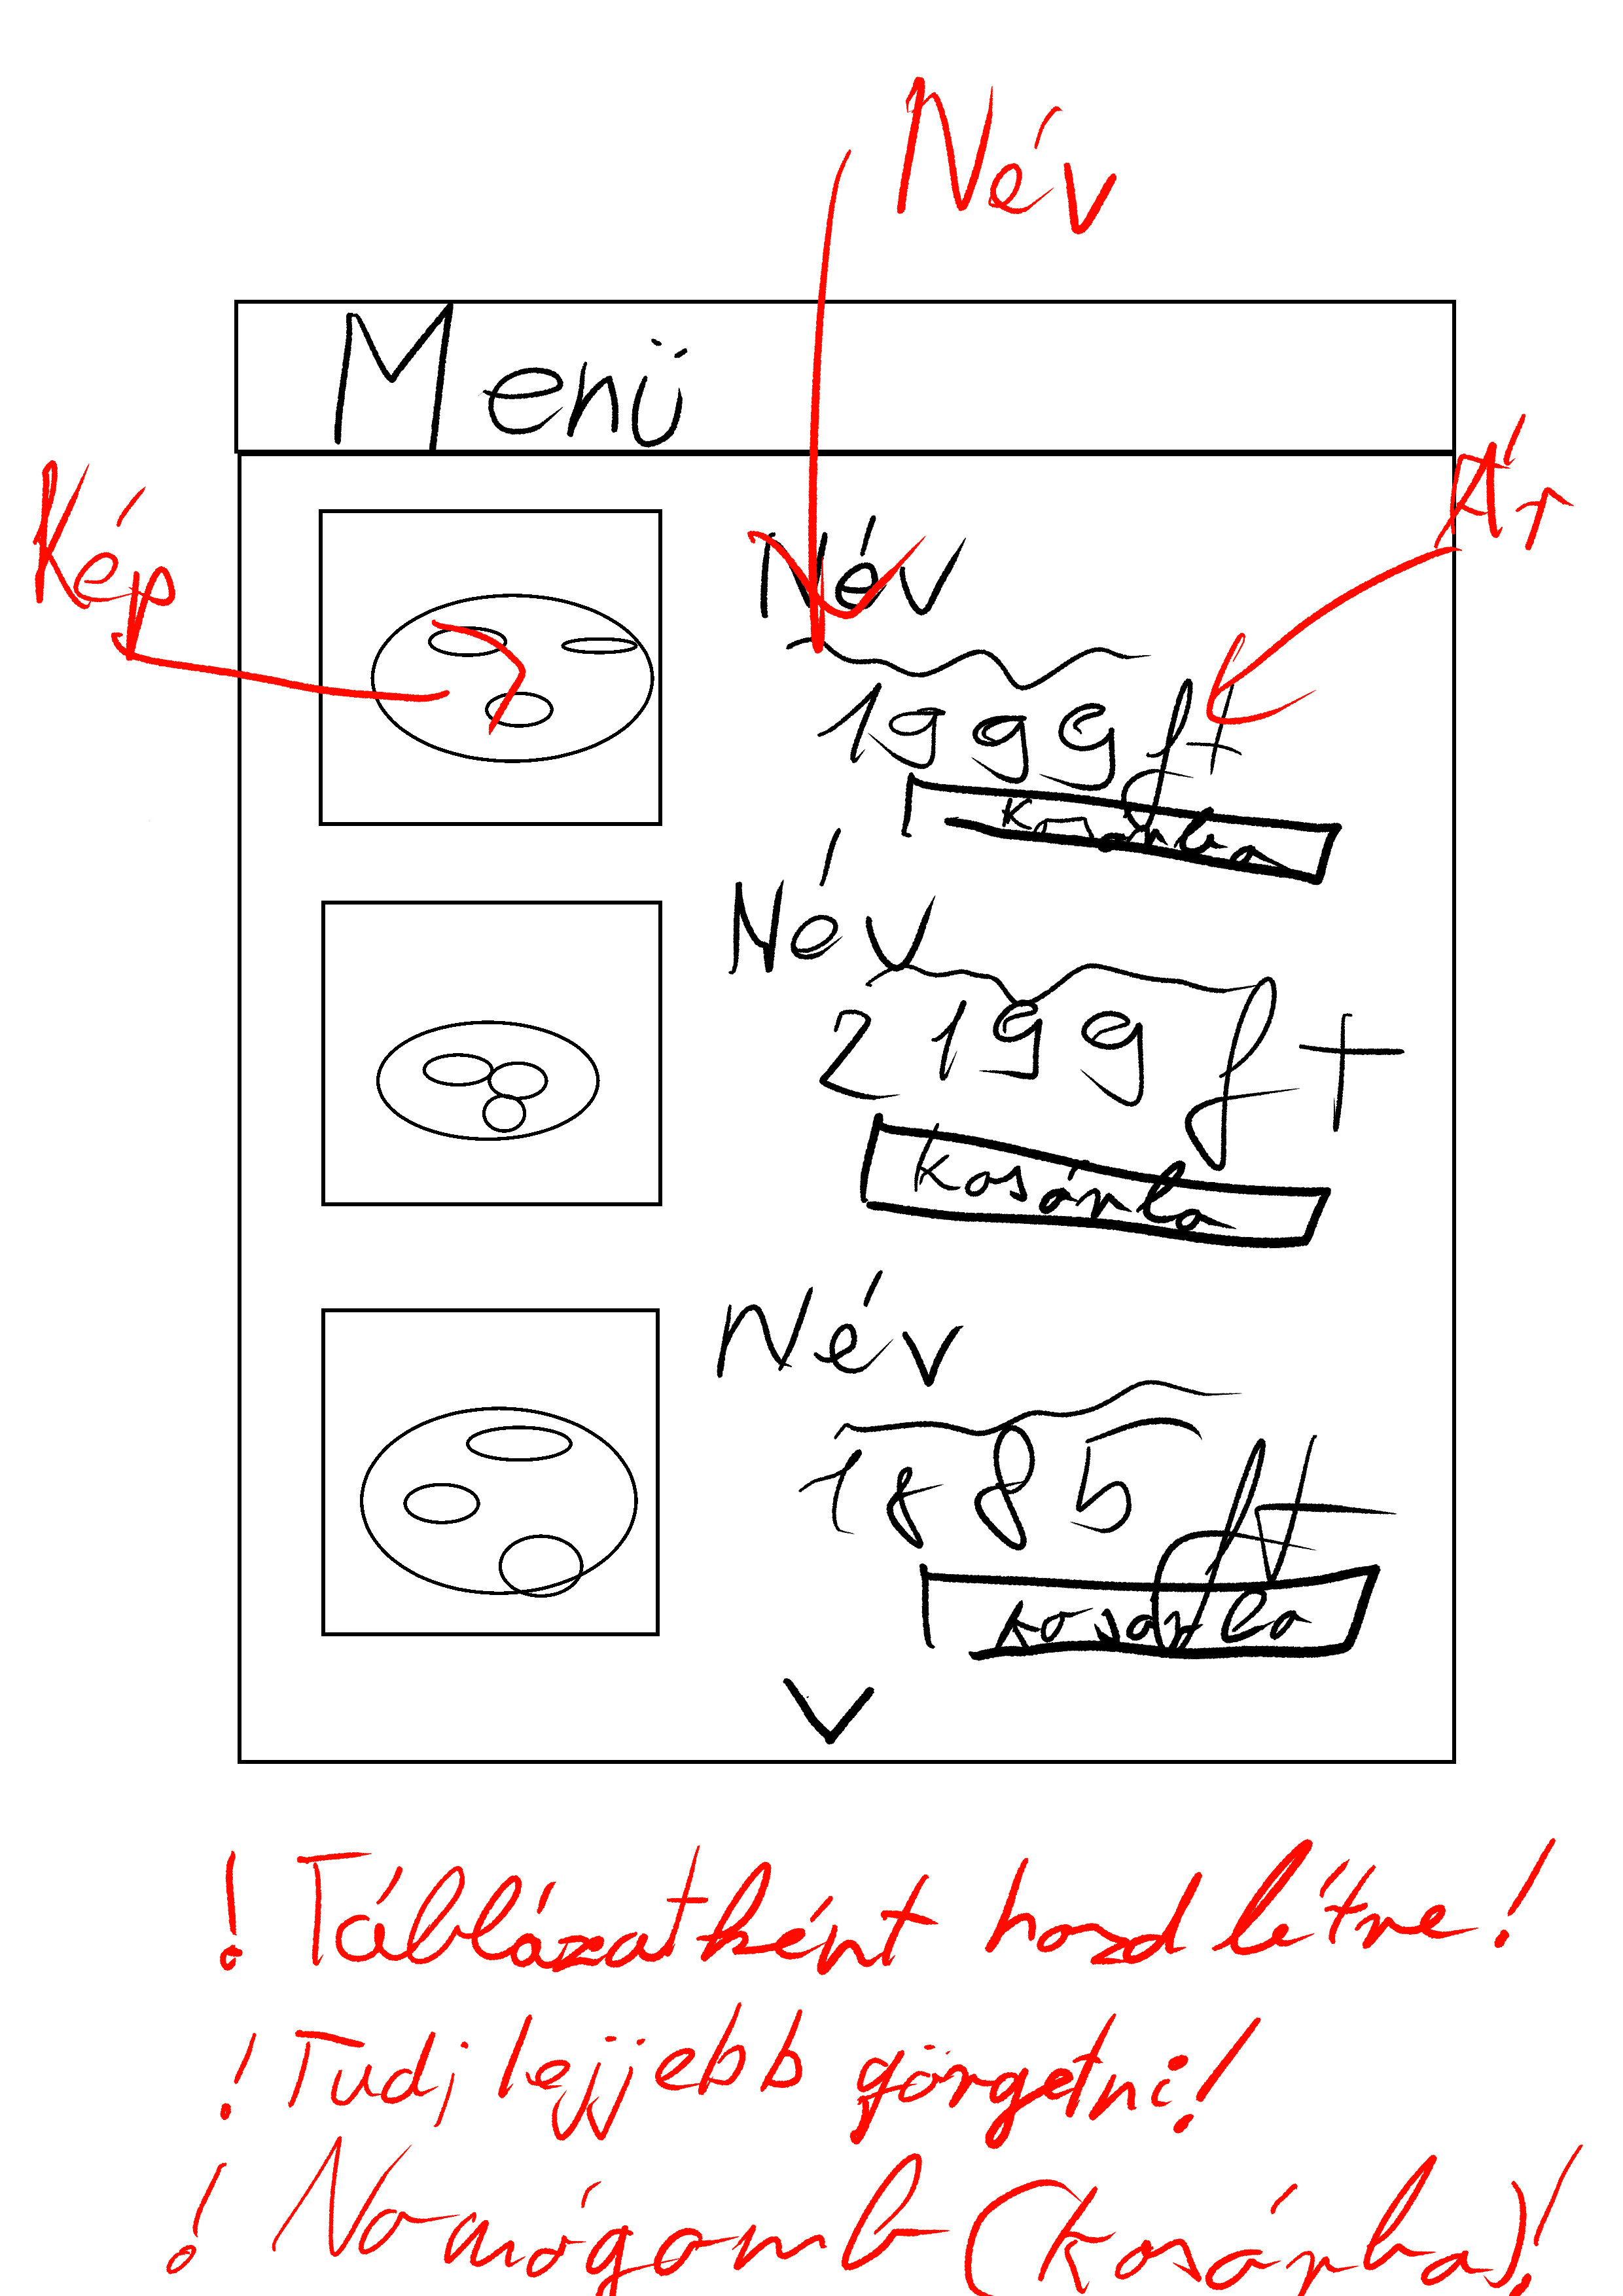 Név
Menü
Ár
Kép
Név
1999 ft
Kosárba
Név
2199 ft
Kosárba
Név
1885 ft
Kosárba
! Táblázatként hozd létre!
! Tudj lejjebb görgetni!
! Nyomógomb (Kosárba)!